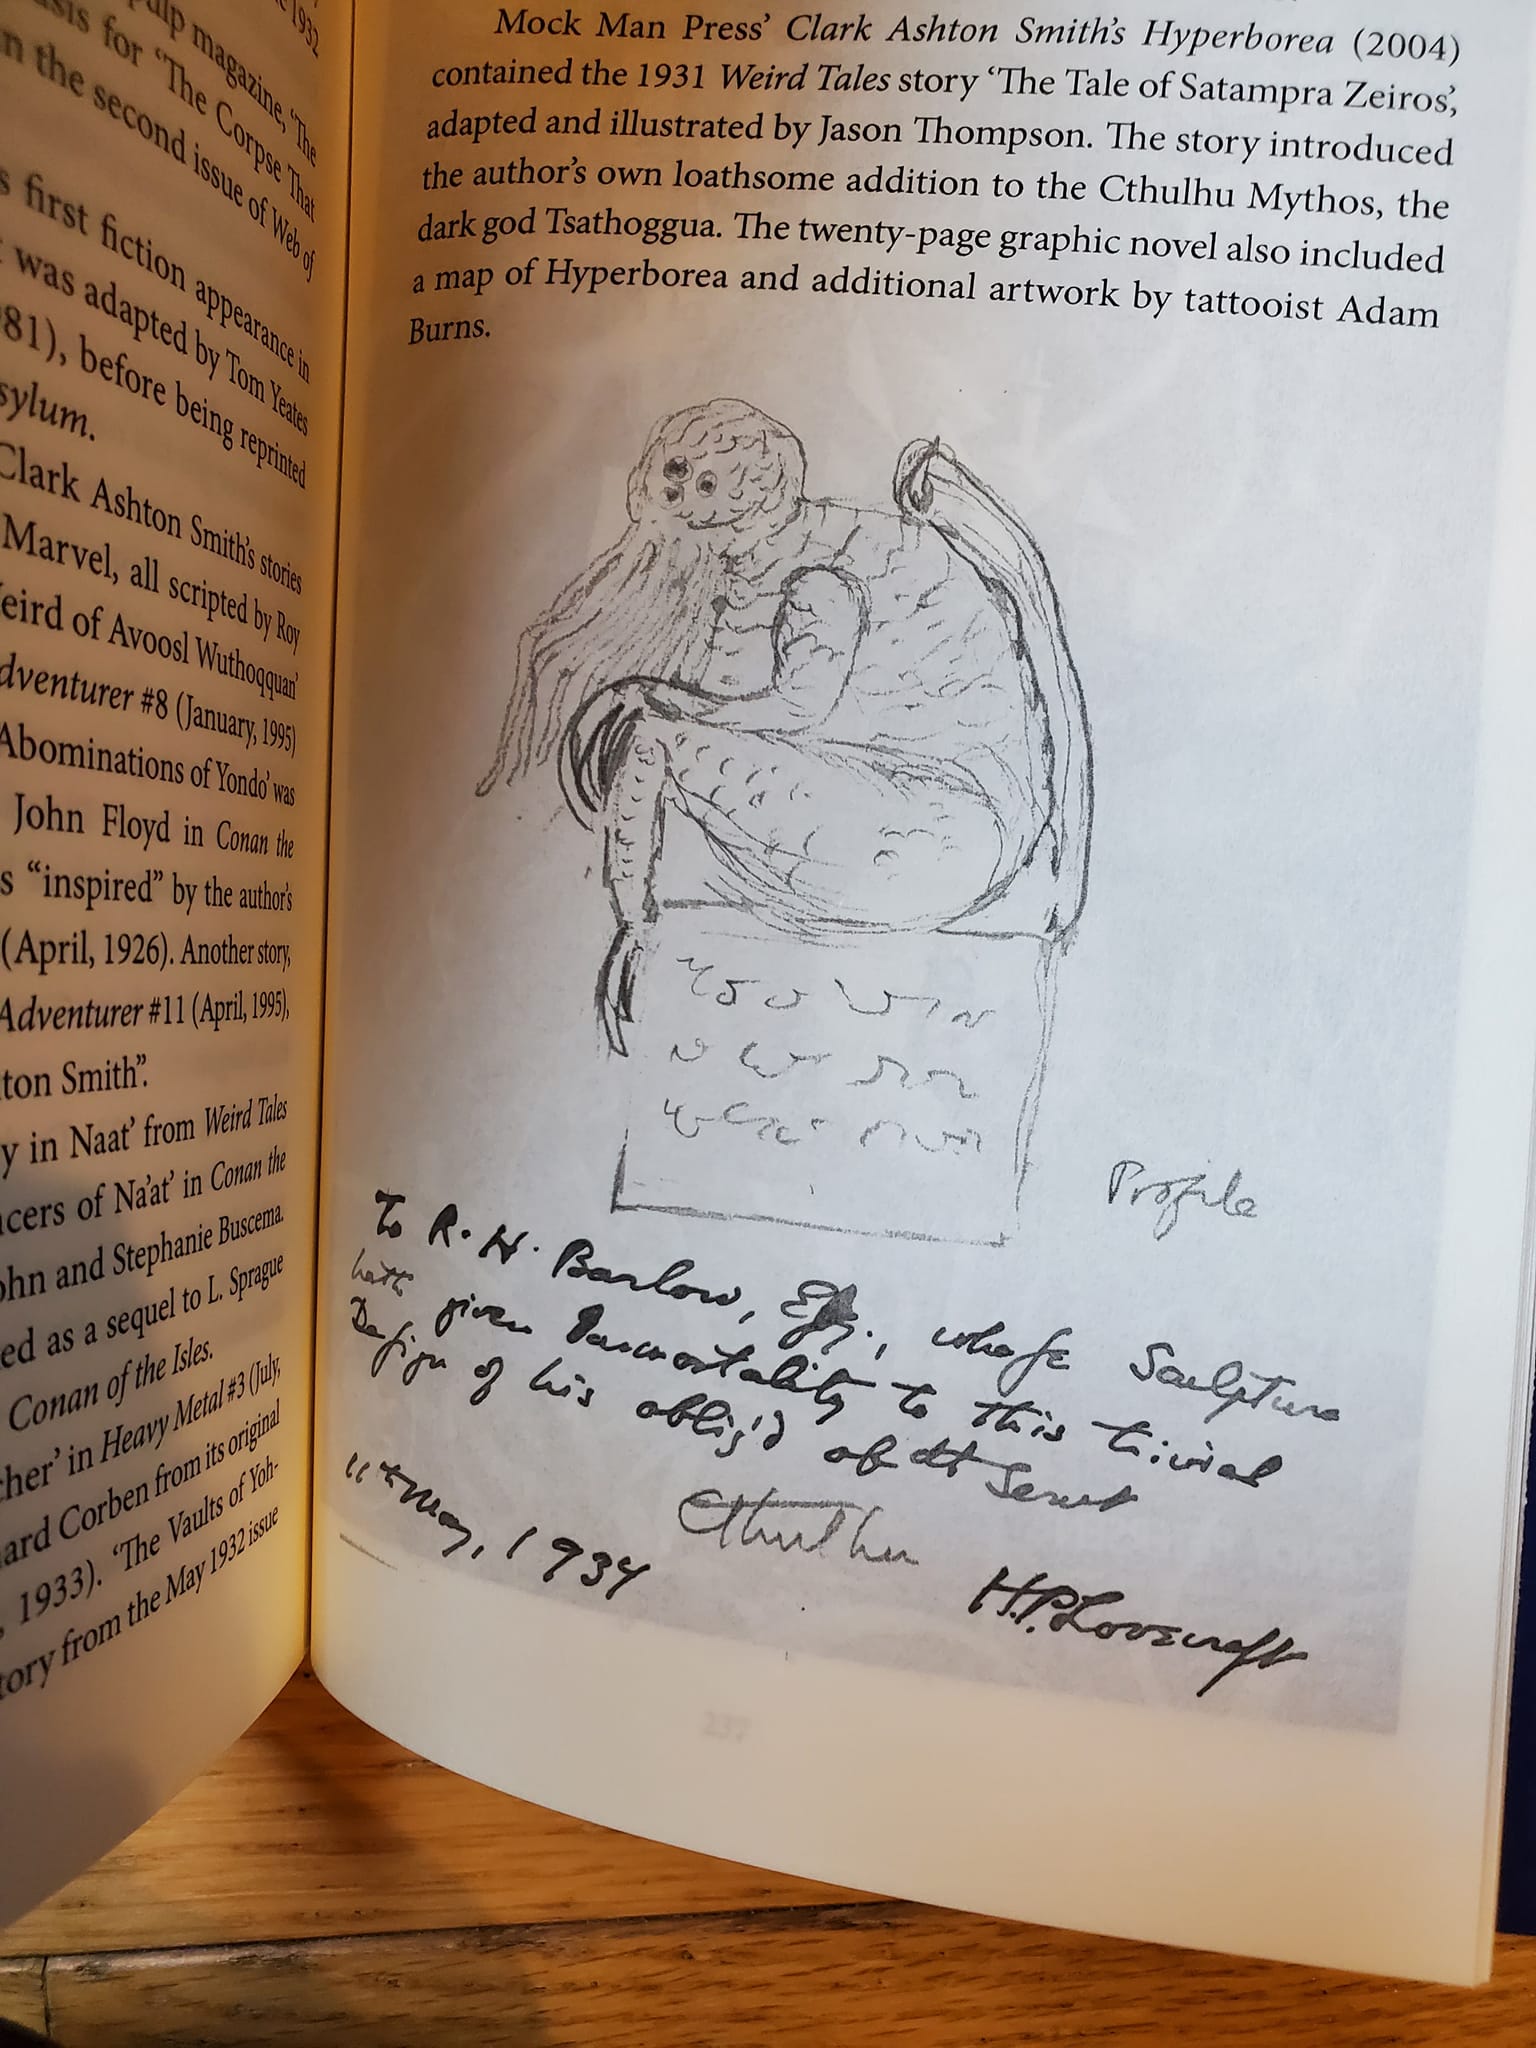 1932
pulp magazine, ‘The
basis for ‘The Corpse That
in the second issue of Web of
first fiction appearance in
was adapted by Tom Yeates
81), before being reprinted
sylum.
Clark Ashton Smith’s stories
Marvel, all scripted by Roy
eird of Avoosl Wuthoqquan’
dventurer #8 (January, 1995)
Abominations of Yondo’ was
John Floyd in Conan the
s “inspired” by the author’s
(April, 1926). Another story,
Adventurer #11 (April, 1995),
ton Smith”.
y in Naat’ from Weird Tales
ncers of Na’at’ in Conan the
ohn and Stephanie Buscema.
ed as a sequel to L. Sprague
Conan of the Isles.
cher’ in Heavy Metal #3 (July,
ard Corben from its original
, 1933). ‘The Vaults of Yoh-
tory from the May 1932 issue
Mock Man Press’ Clark Ashton Smith’s Hyperborea (2004)
contained the 1931 Weird Tales story ‘The Tale of Satampra Zeiros’,
adapted and illustrated by Jason Thompson. The story introduced
the author’s own loathsome addition to the Cthulhu Mythos, the
dark god Tsathoggua. The twenty-page graphic novel also included
a map of Hyperborea and additional artwork by tattooist Adam
Burns.
Profile
To R. H. Barlow, Esq., whose Sculpture
hath given Immortality to this trivial
Design of his oblig’d obdt Servt
Cthulhu
11th May, 1934
H.P. Lovecraft
237